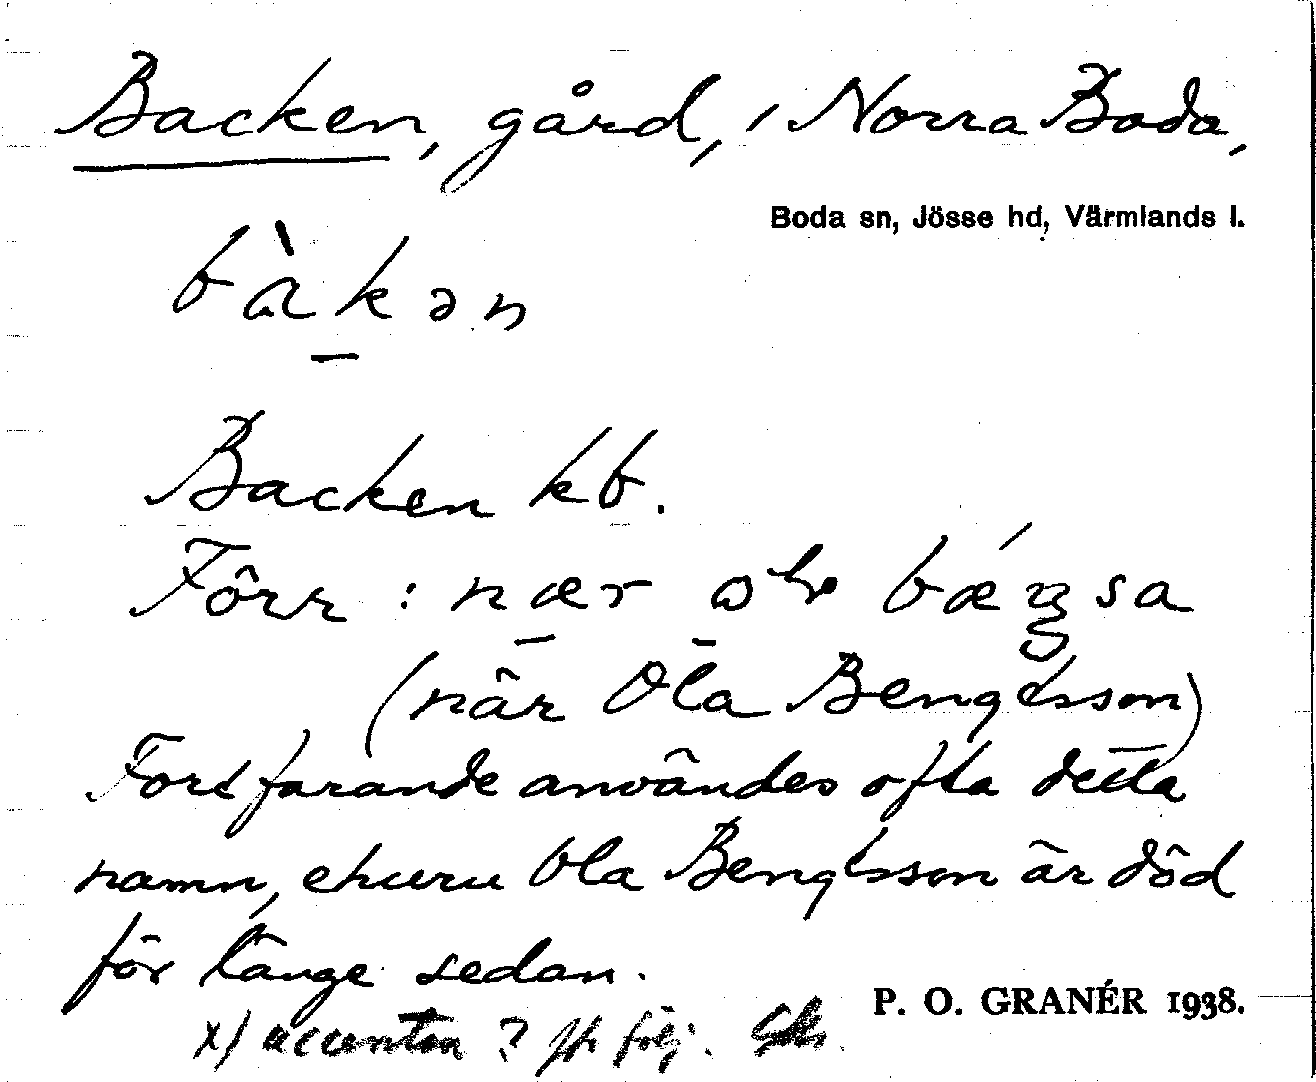 Backen, gård, i Norra Boda,
Boda sn, Jösse hd, Värmlands l.
bàkən
Backen kb.
Förr: nær bǽŋsa
(när Ola Bengtsson)
Fortfarande användes ofta detta
namn, ehuru Ola Bengtsson är död
för länge sedan.
P. O. GRANÉR 1938.
x) accenten? jfr följ.